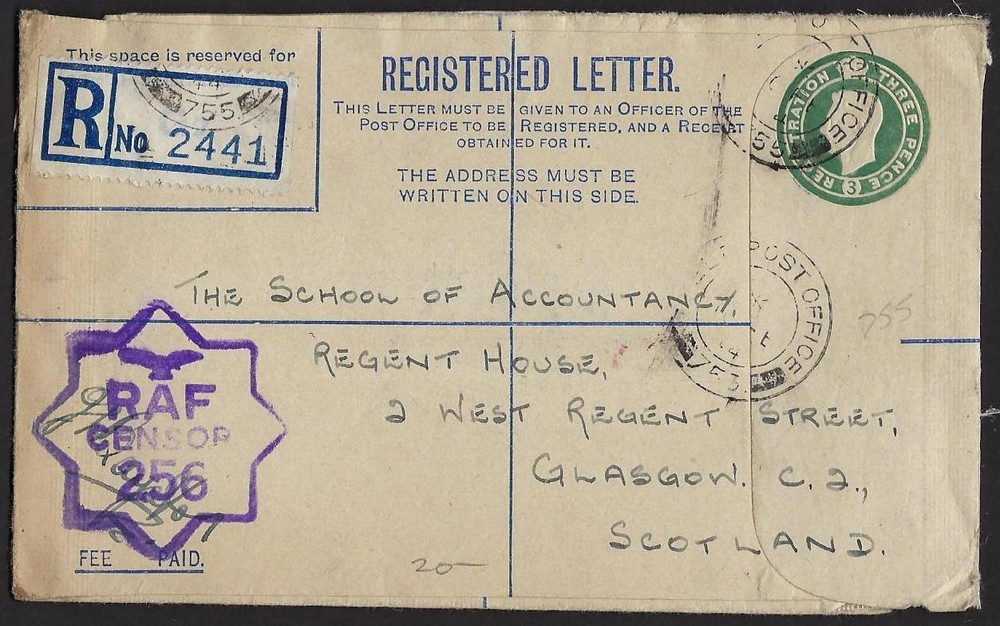 This space is reserved for
REGISTERED LETTER.
THIS LETTER MUST BE GIVEN TO AN OFFICER OF THE
POST OFFICE TO BE REGISTERED, AND A RECEIPT
OBTAINED FOR IT.
THE ADDRESS MUST BE
WRITTEN ON THIS SIDE.
R No 2441
44
755
OFFICE
55
REGISTRATION THREE PENCE
3
POST OFFICE
44
753
755
THE SCHOOL OF ACCOUNTANCY,
REGENT HOUSE,
2 WEST REGENT STREET,
GLASGOW. C.2.,
SCOTLAND.
RAF
CENSOR
256
FEE PAID.
20-